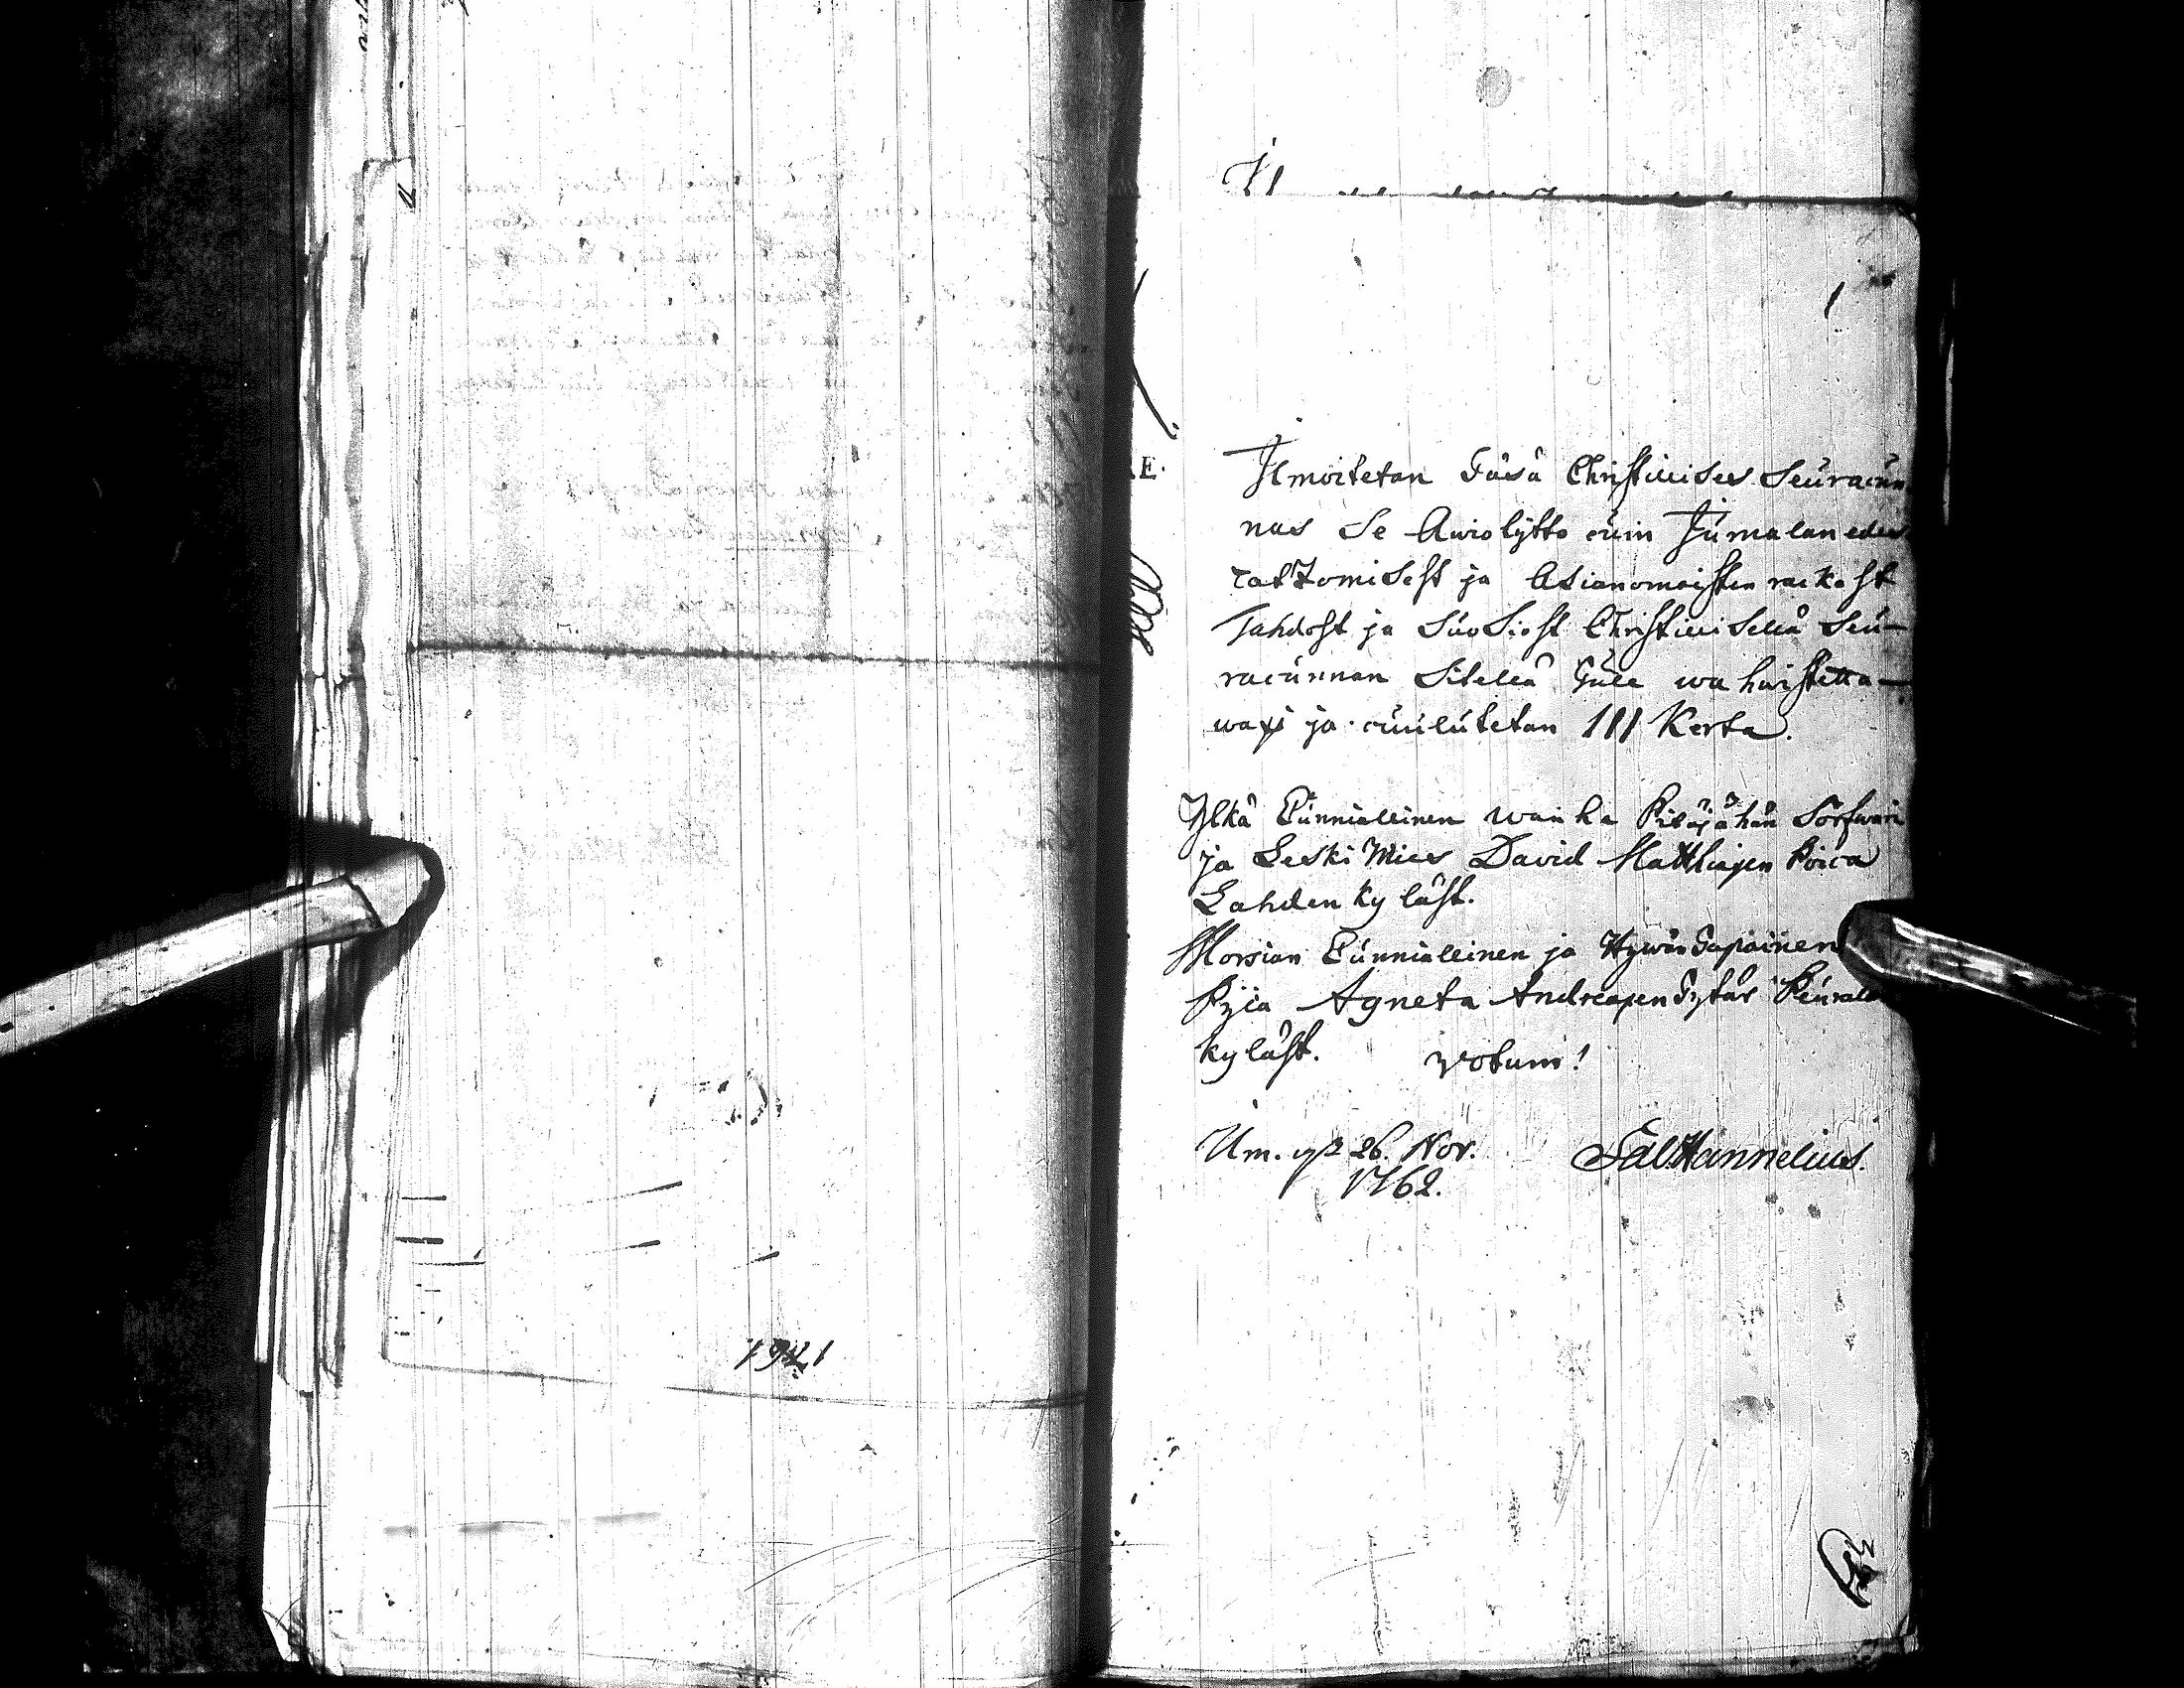 1
Ilmoitetan Täsä Christillises Seuracun
nas Se Awiolijtto cuin Jumalan edes
cattomisest ja Asianomaisten rackast
Tahdost ja Suosiost Christillisellä Seu-
racunnan Sitellä Tule wahwistetta-
waxi ja cuulutetan III Kerta.
Ylkä Cunniallinen wanha Pitäjähän
ja Leski Mies David Matthiaxen Poica
Lahden kyläst.
Morsian Cunniallinen ja Hywän Tapainen
Pijca Agneta Andreaxen Tytär
kyläst. Votum!
Um. 26. Nov. Sal. Hannelius.
1762.